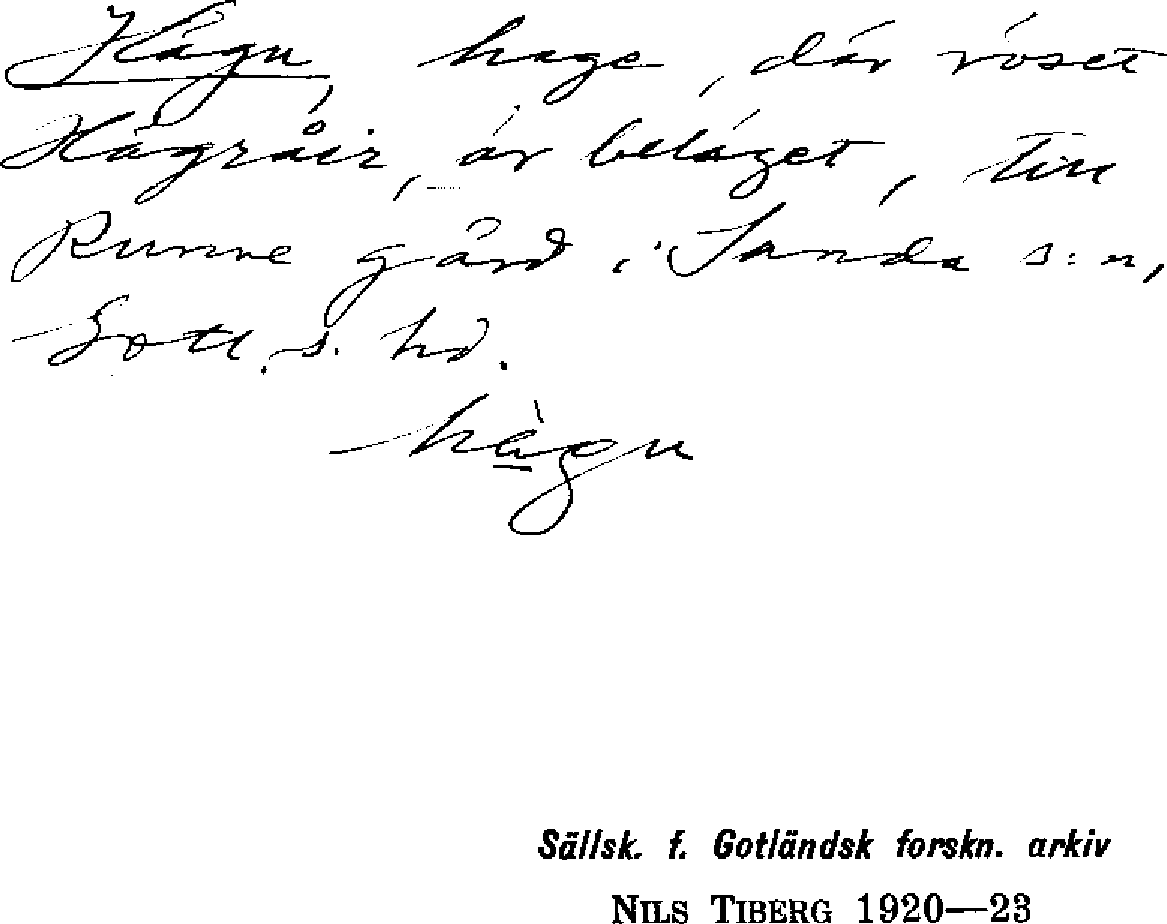 Hägu, hage, där röset
Hägråir, är beläget, till
Runne gård i Sanda s:n,
Gotl. s. hd.
hàgu
Sällsk. f. Gotländsk forskn. arkiv
NILS TIBERG 1920—23